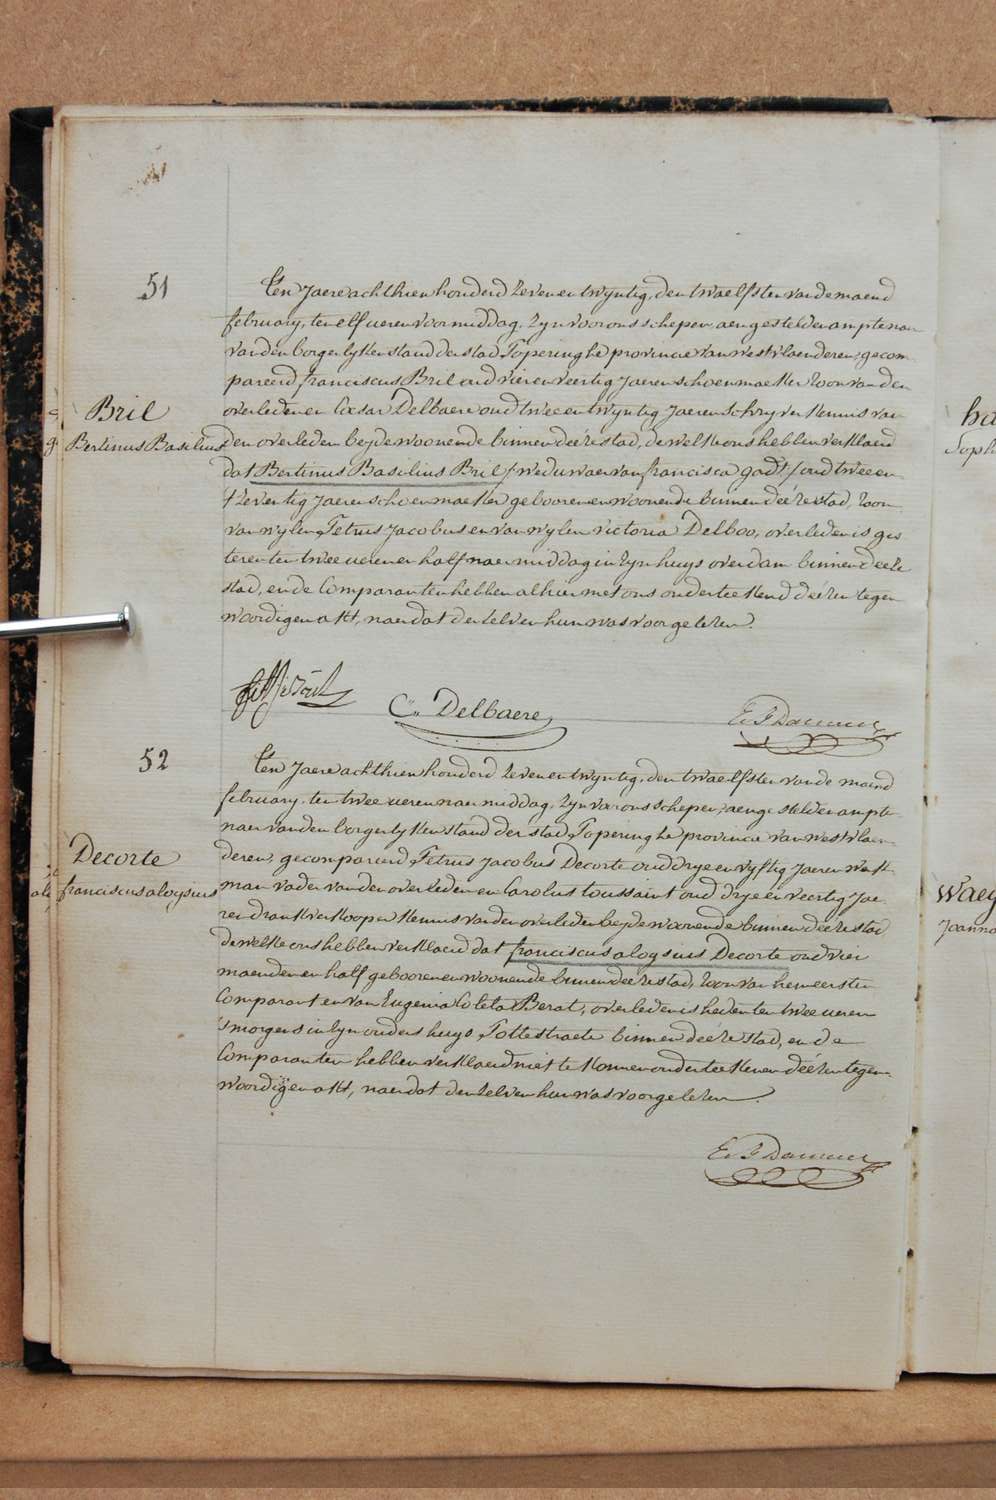 51
Bril
Bertinus Basilius
Ten Jaere achthien honderd zeven en twyntig, den twaelfsten van de maend
february, ten elf ueren voormiddag, zyn voor ons schepen, aengestelden amptenaer
van den borgerlyken stand der stad Poperinghe provincie van westvlaenderen, gecom-
pareerd franciscus Bril oud vier en veertig Jaeren schoenmaeker zoon van den
overleden en Cæsar Delbaere oud twee en twyntig Jaeren schryver kennis van
den overleden beyde woonende binnen deéze stad, de welke ons hebben verklaerd
dat Bertinus Basilius Bril /weduwaer van francisca godt/ oud twee en
tzeventig Jaeren schoenmaeker gebooren en woonende binnen deéze stad, zoon
van wylen Petrus Jacobus en van wylen victoria Delboo, overleden is gis-
teren ten twee ueren en half naer middag in zyn huys overdam binnen deeze
stad, en de Comparanten hebben alhier met ons onderteekend deézen tegen-
woordigen akt, naer dat den zelven hun was voorgelezen.
C. Delbaere
52
Decorte
franciscus aloysius
Ten Jaere achthien honderd zeven en twyntig, den twaelfsten van de maend
february, ten twee ueren naer middag, zyn voor ons schepen, aengestelden ampte-
naer van den borgerlyken stand der stad Poperinghe provincie van westvlaen-
deren, gecompareerd Petrus Jacobus Decorte oud drye en vyftig Jaeren werk-
man vader van den overleden en Carolus toussaint oud drye en veertig Jae-
ren drankverkooper kennis van den overleden beyde woonende binnen deéze stad
de welke ons hebben verklaerd dat franciscus aloysius Decorte oud vier
maenden en half gebooren en woonende binnen deéze stad, zoon van den eersten
Comparant en van Eugenia Coleta Berat, overleden is heden ten twee ueren
's morgens in zyn ouders huys Pottestraete binnen deéze stad, en de
Comparanten hebben verklaerd niet te konnen onderteekenen deézen tegen-
woordigen akt, naer dat den zelven hun was voorgelezen.